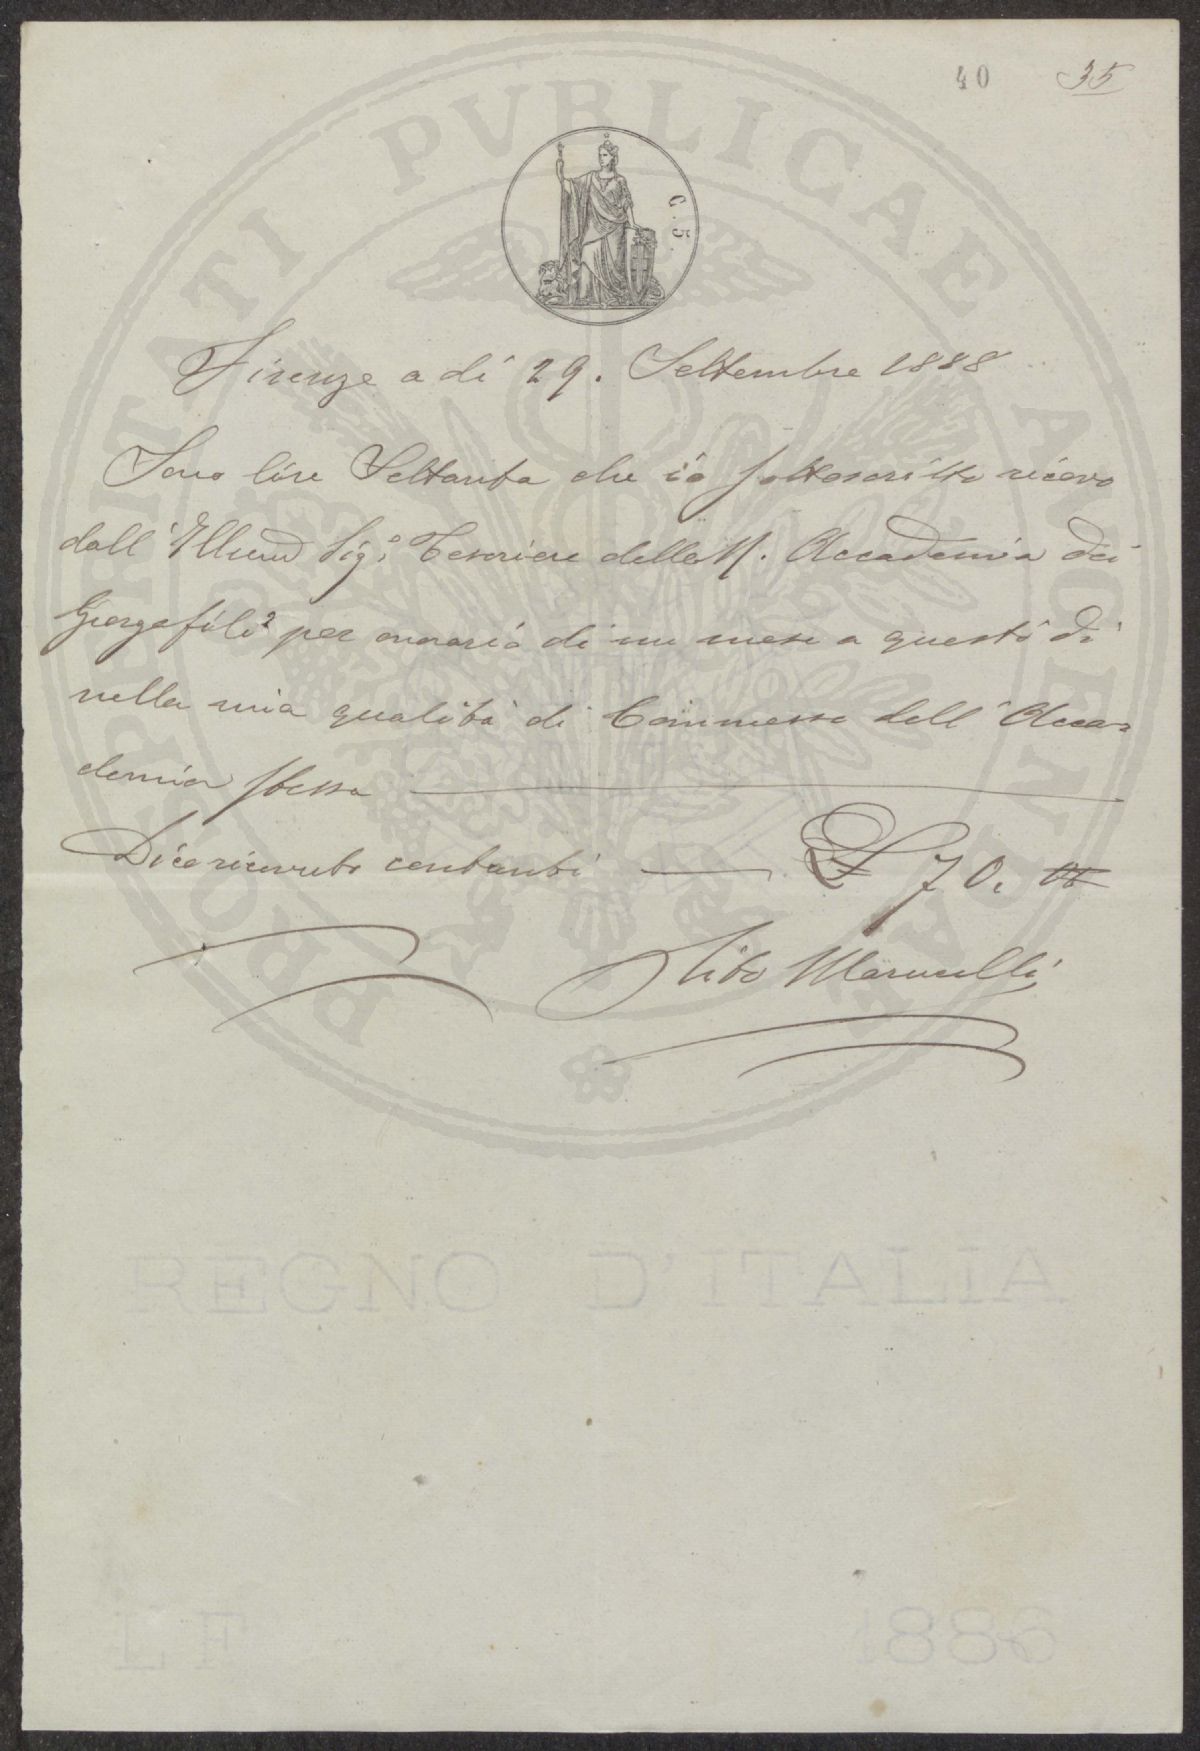 40 35
C. 5.
PROSPERITATI PVBLICAE AVGENDAE
Firenze a di 29. Settembre 1888
Sono lire Settanta che io sottoscritto ricevo
dall'Illmo Sig.o Tesoriere della R. Accademia dei
Georgofili per onorario di un mese a questo dì
nella mia qualità di Commesso dell'Acca=
demia stessa
Dico ricevuto contanti £ 70. 00
Tito Marucelli
REGNO D'ITALIA
LF 1886